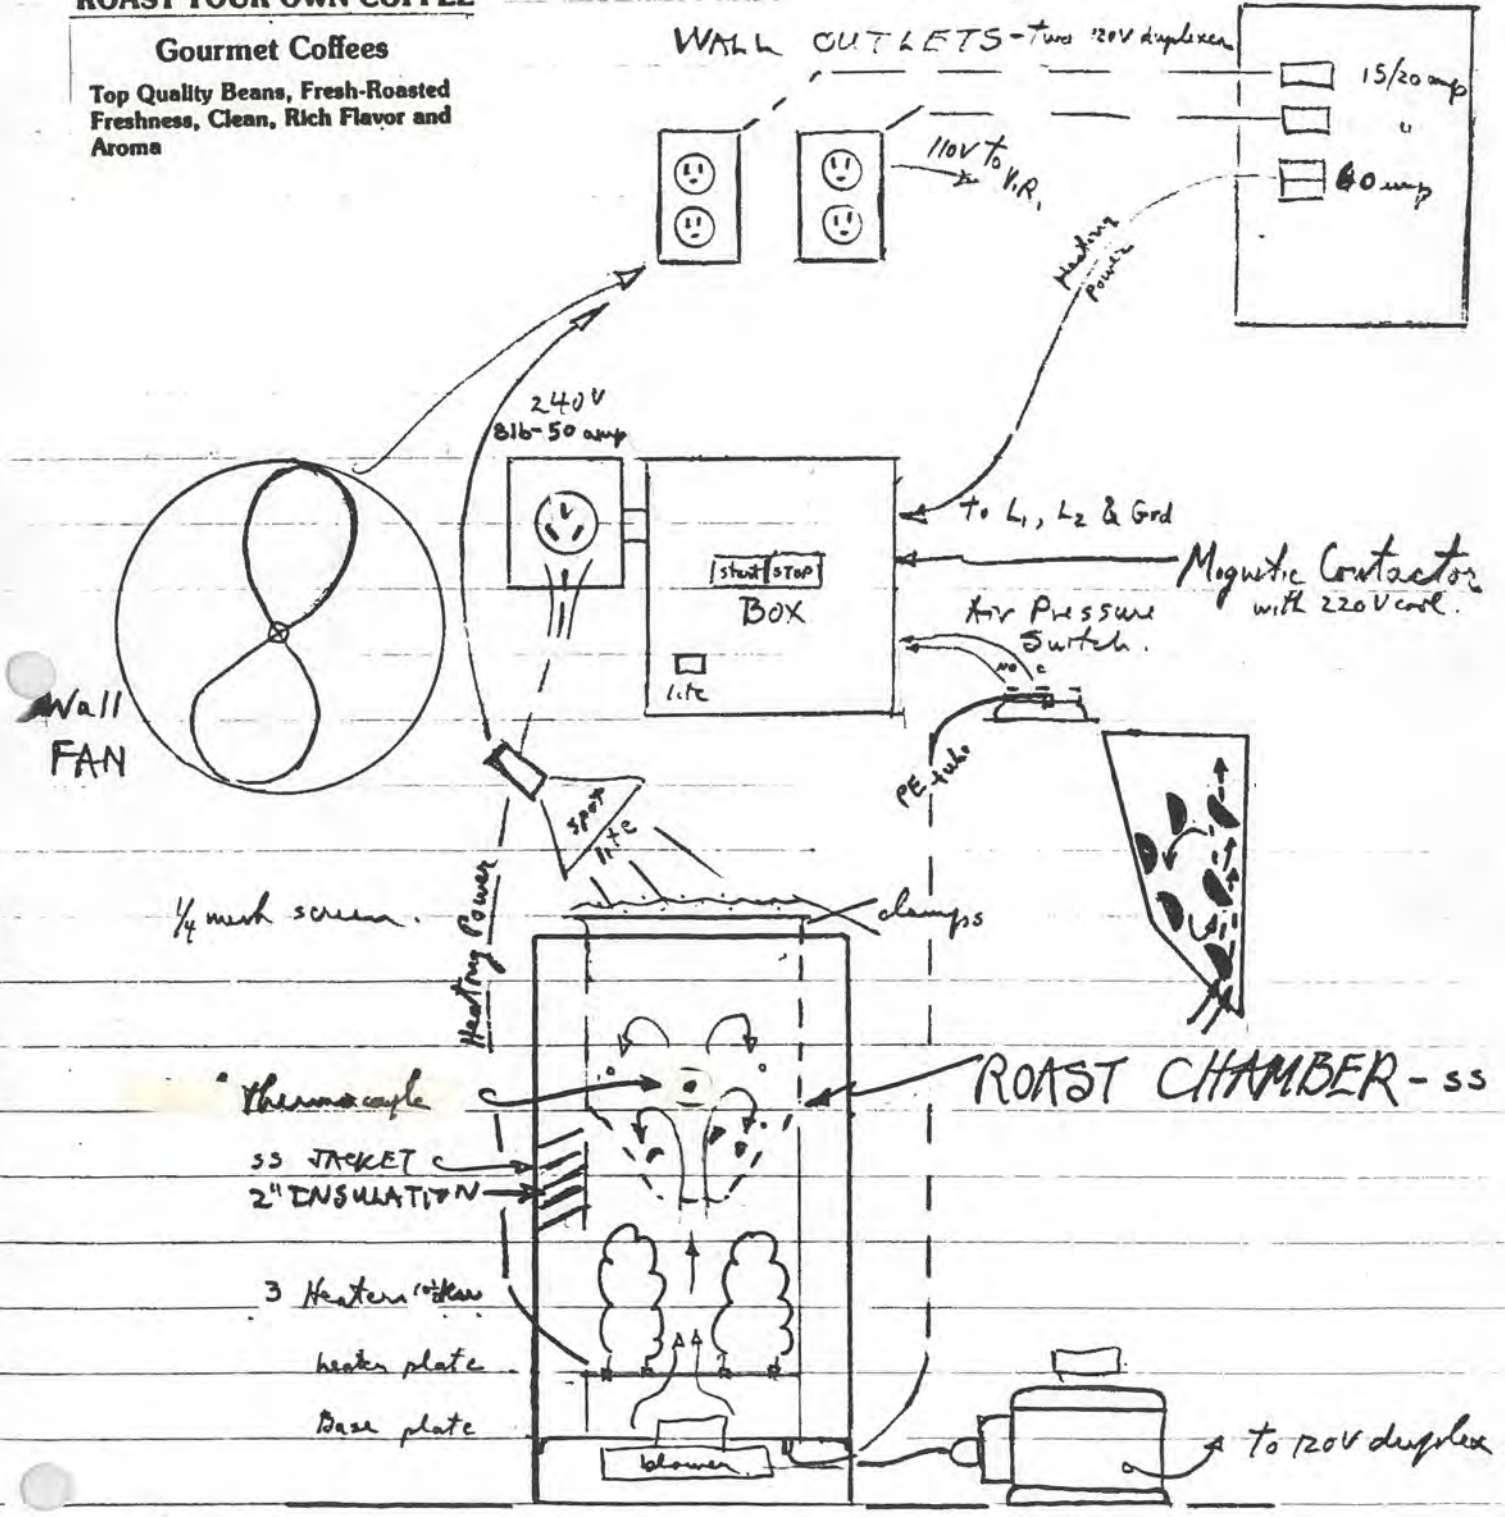 ROAST YOUR OWN COFFEE
Gourmet Coffees
Top Quality Beans, Fresh-Roasted
Freshness, Clean, Rich Flavor and
Aroma
WALL OUTLETS - Two 120V duplexes
15/20 amp
"
60 amp
110V to V.R.
Heating
Power
240V
8lb-50 amp
to L1, L2 & Grd
start STOP
BOX
lite
Magnetic Contactor
with 220V coil.
Air Pressure
Switch.
NO C
PE-tube
Wall
FAN
spot
lite
1/4 mesh screen.
clamps
Heating Power
Thermocouple
ROAST CHAMBER - SS
SS JACKET
2" INSULATION
3 Heaters
heater plate
Base plate
blower
To 120V duplex